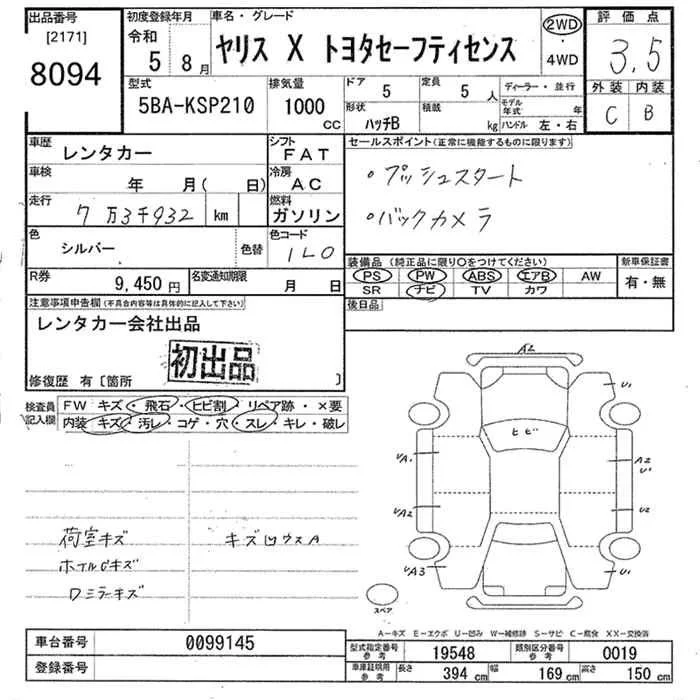 出品番号
[2171]
8094
初度登録年月
令和
5 8月
車名・グレード
ヤリス X トヨタセーフティセンス
2WD
・
4WD
評価点
3.5
外装 内装
C B
型式
5BA-KSP210
排気量
1000
CC
ドア
5
定員
5人
形状
ハッチB
積載
kg
ディーラー・並行
モデル年式 年
ハンドル 左・右
車歴
レンタカー
シフト
FAT
車検
年 月( 日)
冷房
AC
走行
7万3千932 km
燃料
ガソリン
色
シルバー
色替
色コード
1L0
R券
9,450円
名変通知期限
月 日
セールスポイント(正常に機能するものに限ります)
・プッシュスタート
・バックカメラ
装備品(純正品に限り○をつけてください)
PS PW ABS エアB AW
SR ナビ TV カワ
新車保証書
有・無
後日品
注意事項申告欄(不具合内容等は具体的に記入して下さい)
レンタカー会社出品
初出品
修復歴 有〔箇所 〕
検査員記入欄
FW キズ・飛石・ヒビ割・リペア跡・×要
内装 キズ・汚レ・コゲ・穴・スレ・キレ・破レ
荷室キズ
ホイルGキズ
Dミラーキズ
キズ凹ウスA
A2
U1
ヒビ
UA1
A2
U1
UA2
U2
UA3
U1
スペア
A－キズ E－エクボ U－凹み W－補修跡 S－サビ C－腐食 XX－交換済
車台番号
0099145
登録番号
型式指定番号
参考
19548
類別区分番号
参考
0019
車庫証明用
参考
長さ
394 cm
幅
169 cm
高さ
150 cm